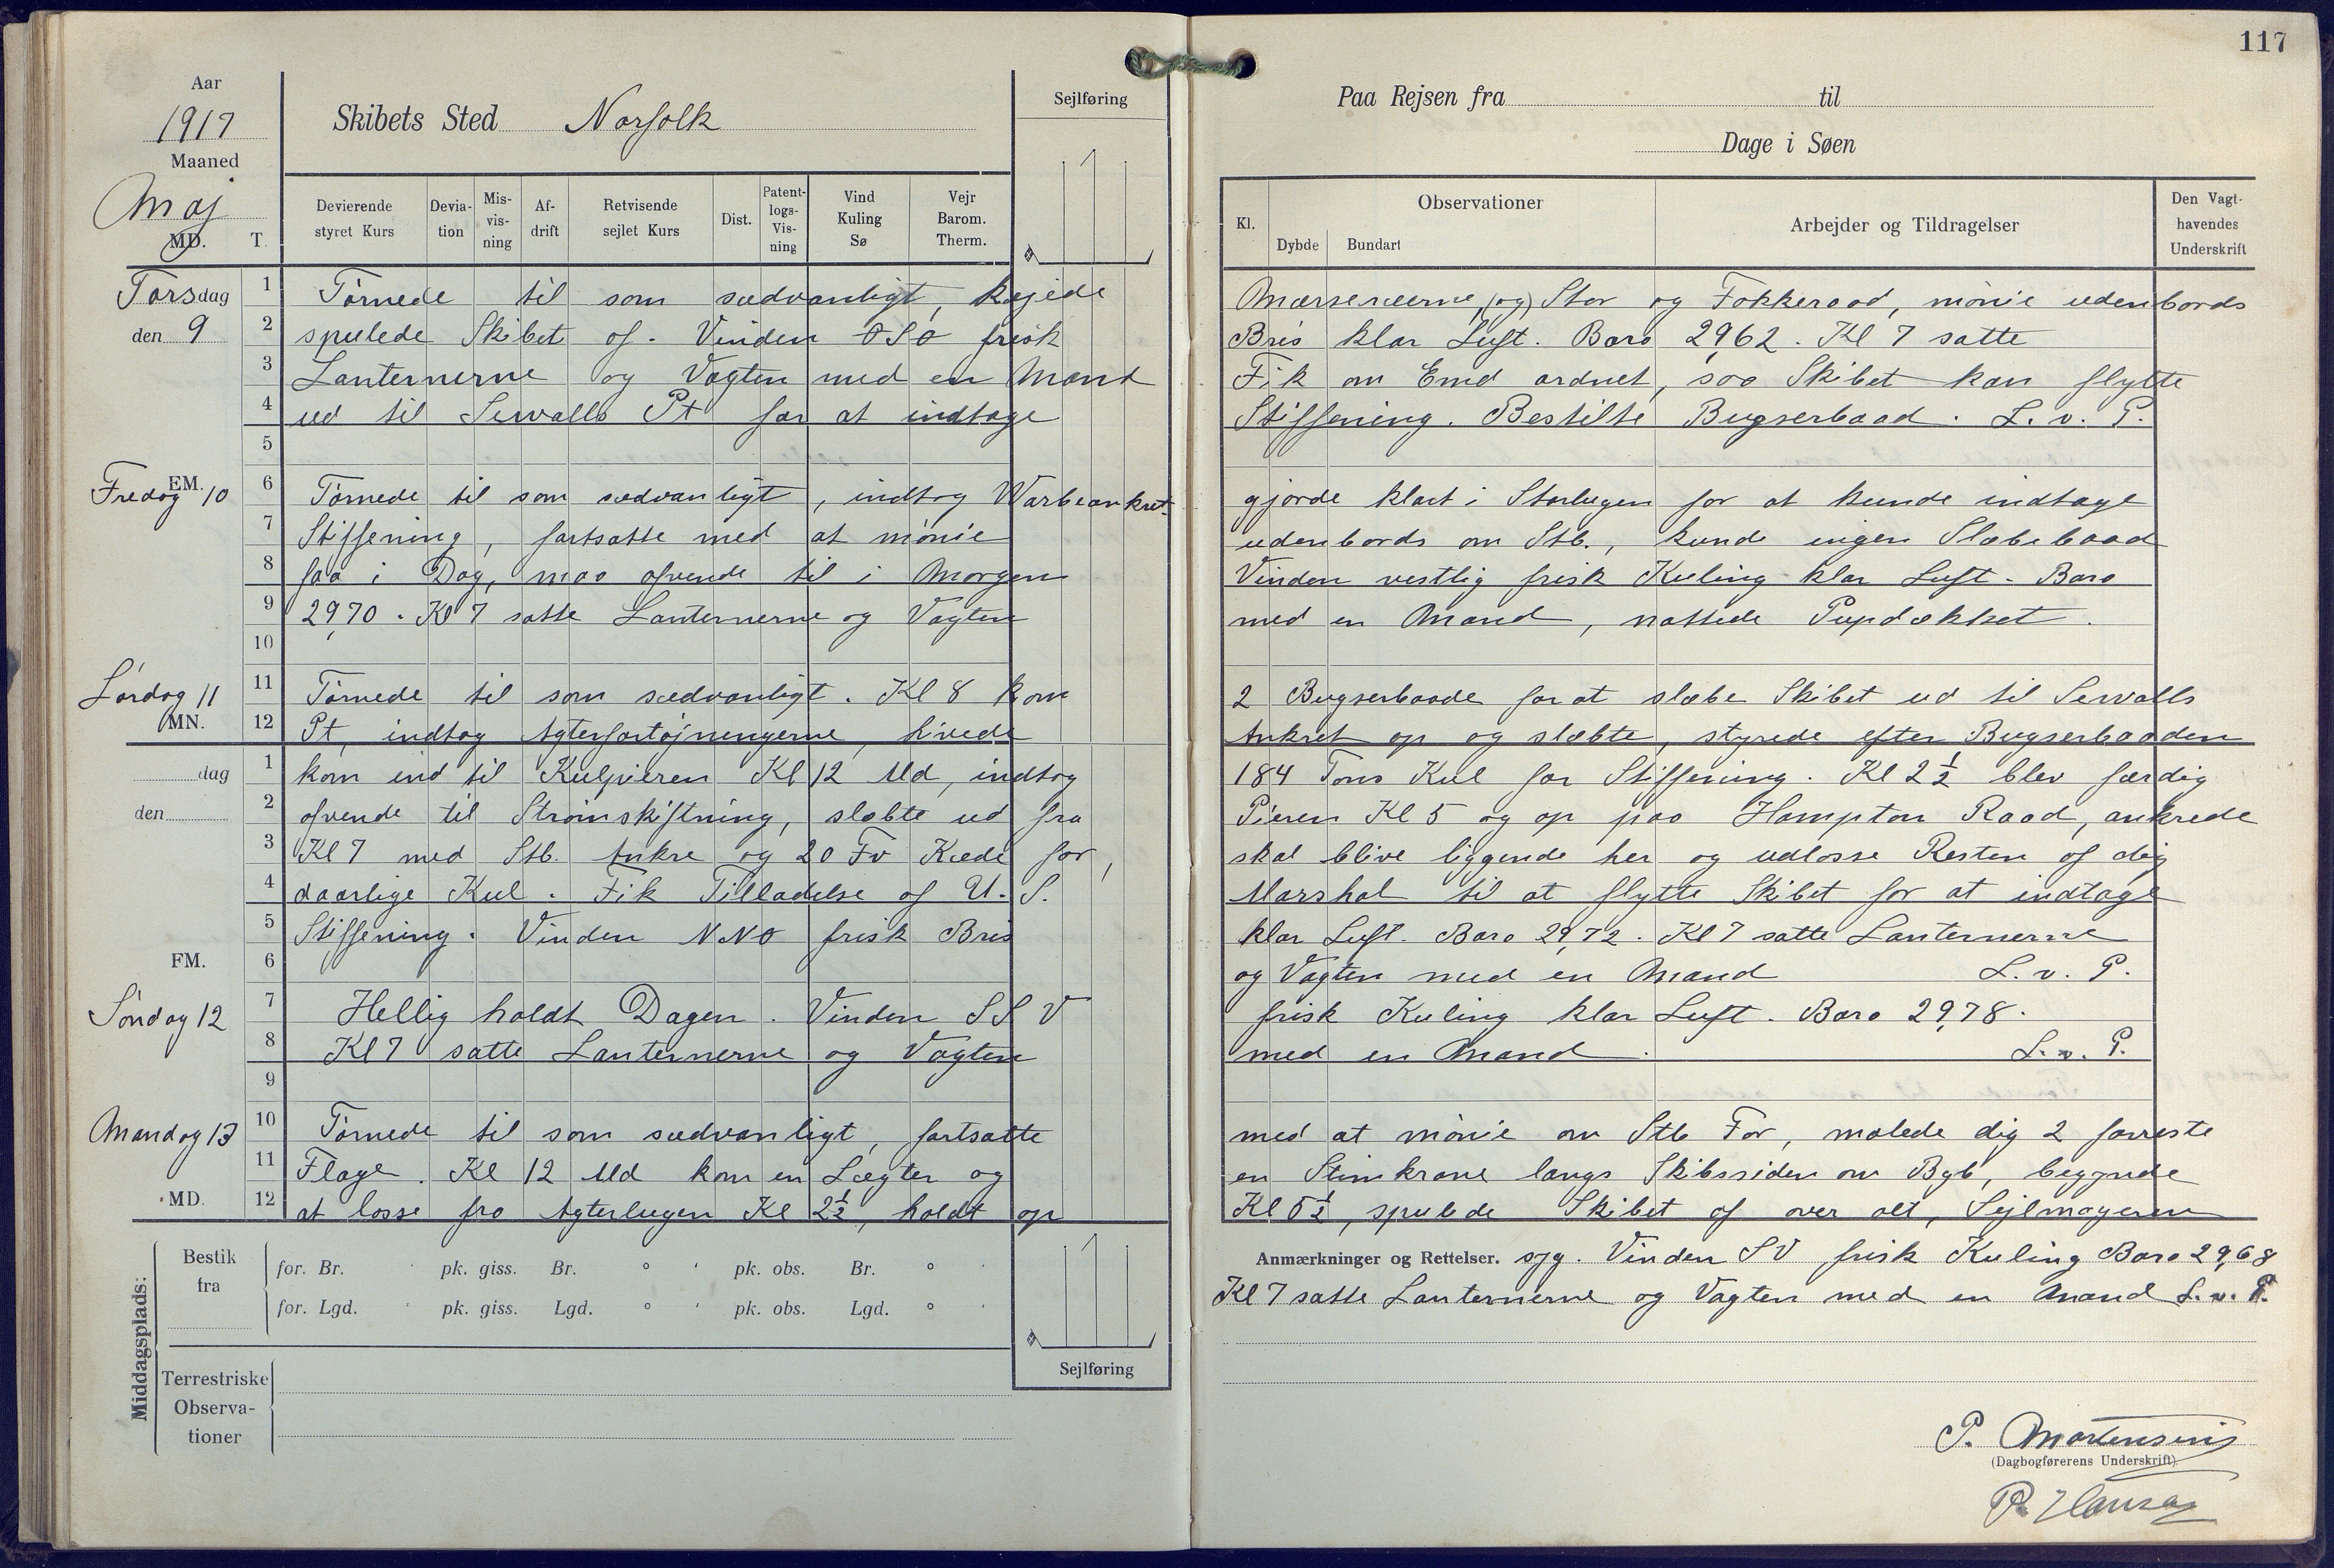 117
Aar
1917
Maaned
Maj
MD.
T.
Skibets Sted Norfolk
Sejlføring
Devierende styret Kurs
Devia-tion
Mis-vis-ning
Af-drift
Retvisende sejlet Kurs
Dist.
Patent-logs-Vis-ning
Vind Kuling Sø
Vejr Barom. Therm.
Paa Rejsen fra til
Dage i Søen
Kl.
Observationer
Dybde Bundart
Arbejder og Tildragelser
Den Vagt-havendes Underskrift
Torsdag den 9
1 Tørnede til som sædvanligt, kajede Mærseræerne, (og) Stor og Fokkeraad, mønie udenbords
2 spulede Skibet af. Vinden OSO frisk Bris klar Luft. Baro 29,62. Kl 7 satte
3 Lanternerne og Vagten med en Mand Fik om Emd ordnet, saa Skibet kan flytte
4 ud til Sewalls Pt for at indtage Stiffening. Bestilte Bugserbaad. L. v. P.
5
EM.
Fredag 10
6 Tørnede til som sædvanligt, indtog Warbeankret gjorde klart i Storlugen for at kunde indtage
7 Stiffening, fortsatte med at mønie udenbords om Stb., kunde ingen Slæbebaad
8 faa i Dag, maa afvende til i Morgen Vinden vestlig frisk Kuling klar Luft. Baro
9 29,70. Kl 7 satte Lanternerne og Vagten med en Mand, nattede Pupdækket.
10
Lørdag 11
MN.
11 Tørnede til som sædvanligt. Kl 8 kom 2 Bugserbaade for at slæbe Skibet ud til Sewalls
12 Pt, indtog Agterfortøjningerne, hivede Ankret op og slæbte, styrede efter Bugserbaaden
dag
den
1 kom ind til Kulpieren Kl 12 Md, indtog 184 Tons Kul for Stiffening. Kl 2½ blev færdig
2 afvende til Strømskiftning, slæbte ud fra Pieren Kl 5 og op paa Hampton Road, ankrede
3 Kl 7 med Stb. Anker og 20 Fv Kæde for, skal blive liggende her og udlosse Resten af dej
4 daarlige Kul. Fik Tilladelse af U. S. Marshal til at flytte Skibet for at indtage
5 Stiffening. Vinden NNO frisk Bris klar Luft. Baro 29,72. Kl 7 satte Lanternerne
FM.
6 og Vagten med en Mand L. v. P.
Søndag 12
7 Hellig holdt Dagen. Vinden SSV frisk Kuling klar Luft. Baro 29,78.
8 Kl 7 satte Lanternerne og Vagten med en Mand. L. v. P.
9
Mandag 13
10 Tørnede til som sædvanligt, fortsatte med at mønie om Stb For, malede dig 2 forreste
11 Flage. Kl 12 Md kom en Lægter og en Stimkrane langs Skibssiden om Bgb, begynde
MD.
12 at losse fra Agterlugen Kl 2½, holdt op Kl 5½, spulede Skibet af over alt, Sejlmageren
Anmærkninger og Rettelser. syg. Vinden SV frisk Kuling Baro 29,68
Kl 7 satte Lanternerne og Vagten med en Mand L. v. P.
Middagsplads:
Bestik fra
for. Br. ' pk. giss. Br. ° ' pk. obs. Br. ° '
for. Lgd. ' pk. giss. Lgd. ° ' pk. obs. Lgd. ° '
Terrestriske Observa-tioner
Sejlføring
P. Mortensen
(Dagbogførerens Underskrift)